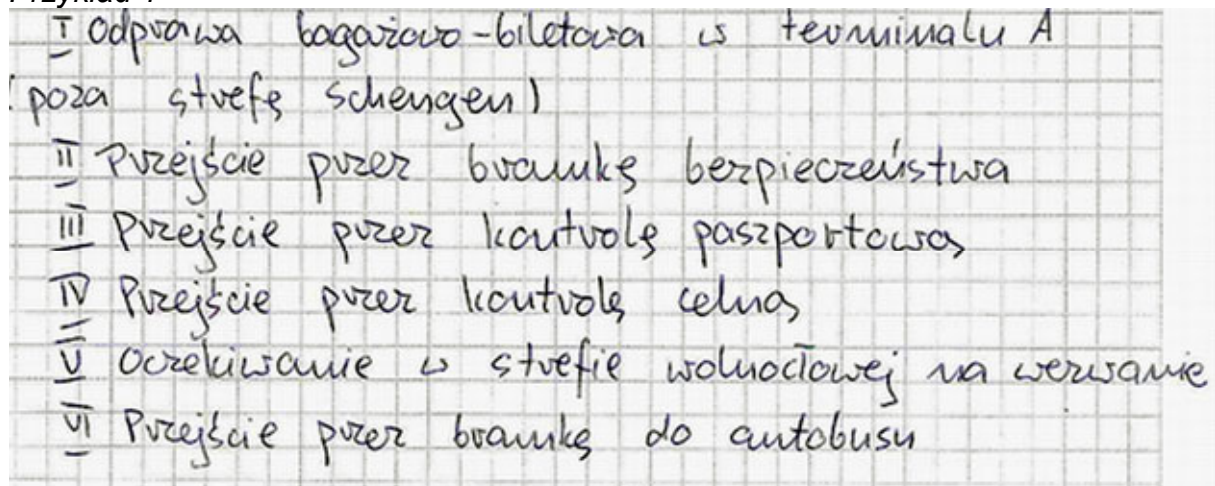 I Odprawa bagażowo-biletowa w terminalu A
(poza strefę schengen)
II Przejście przez bramkę bezpieczeństwa
III Przejście przez kontrolę paszportową
IV Przejście przez kontrolę celną
V Oczekiwanie w strefie wolnocłowej na wezwanie
VI Przejście przez bramkę do autobusu